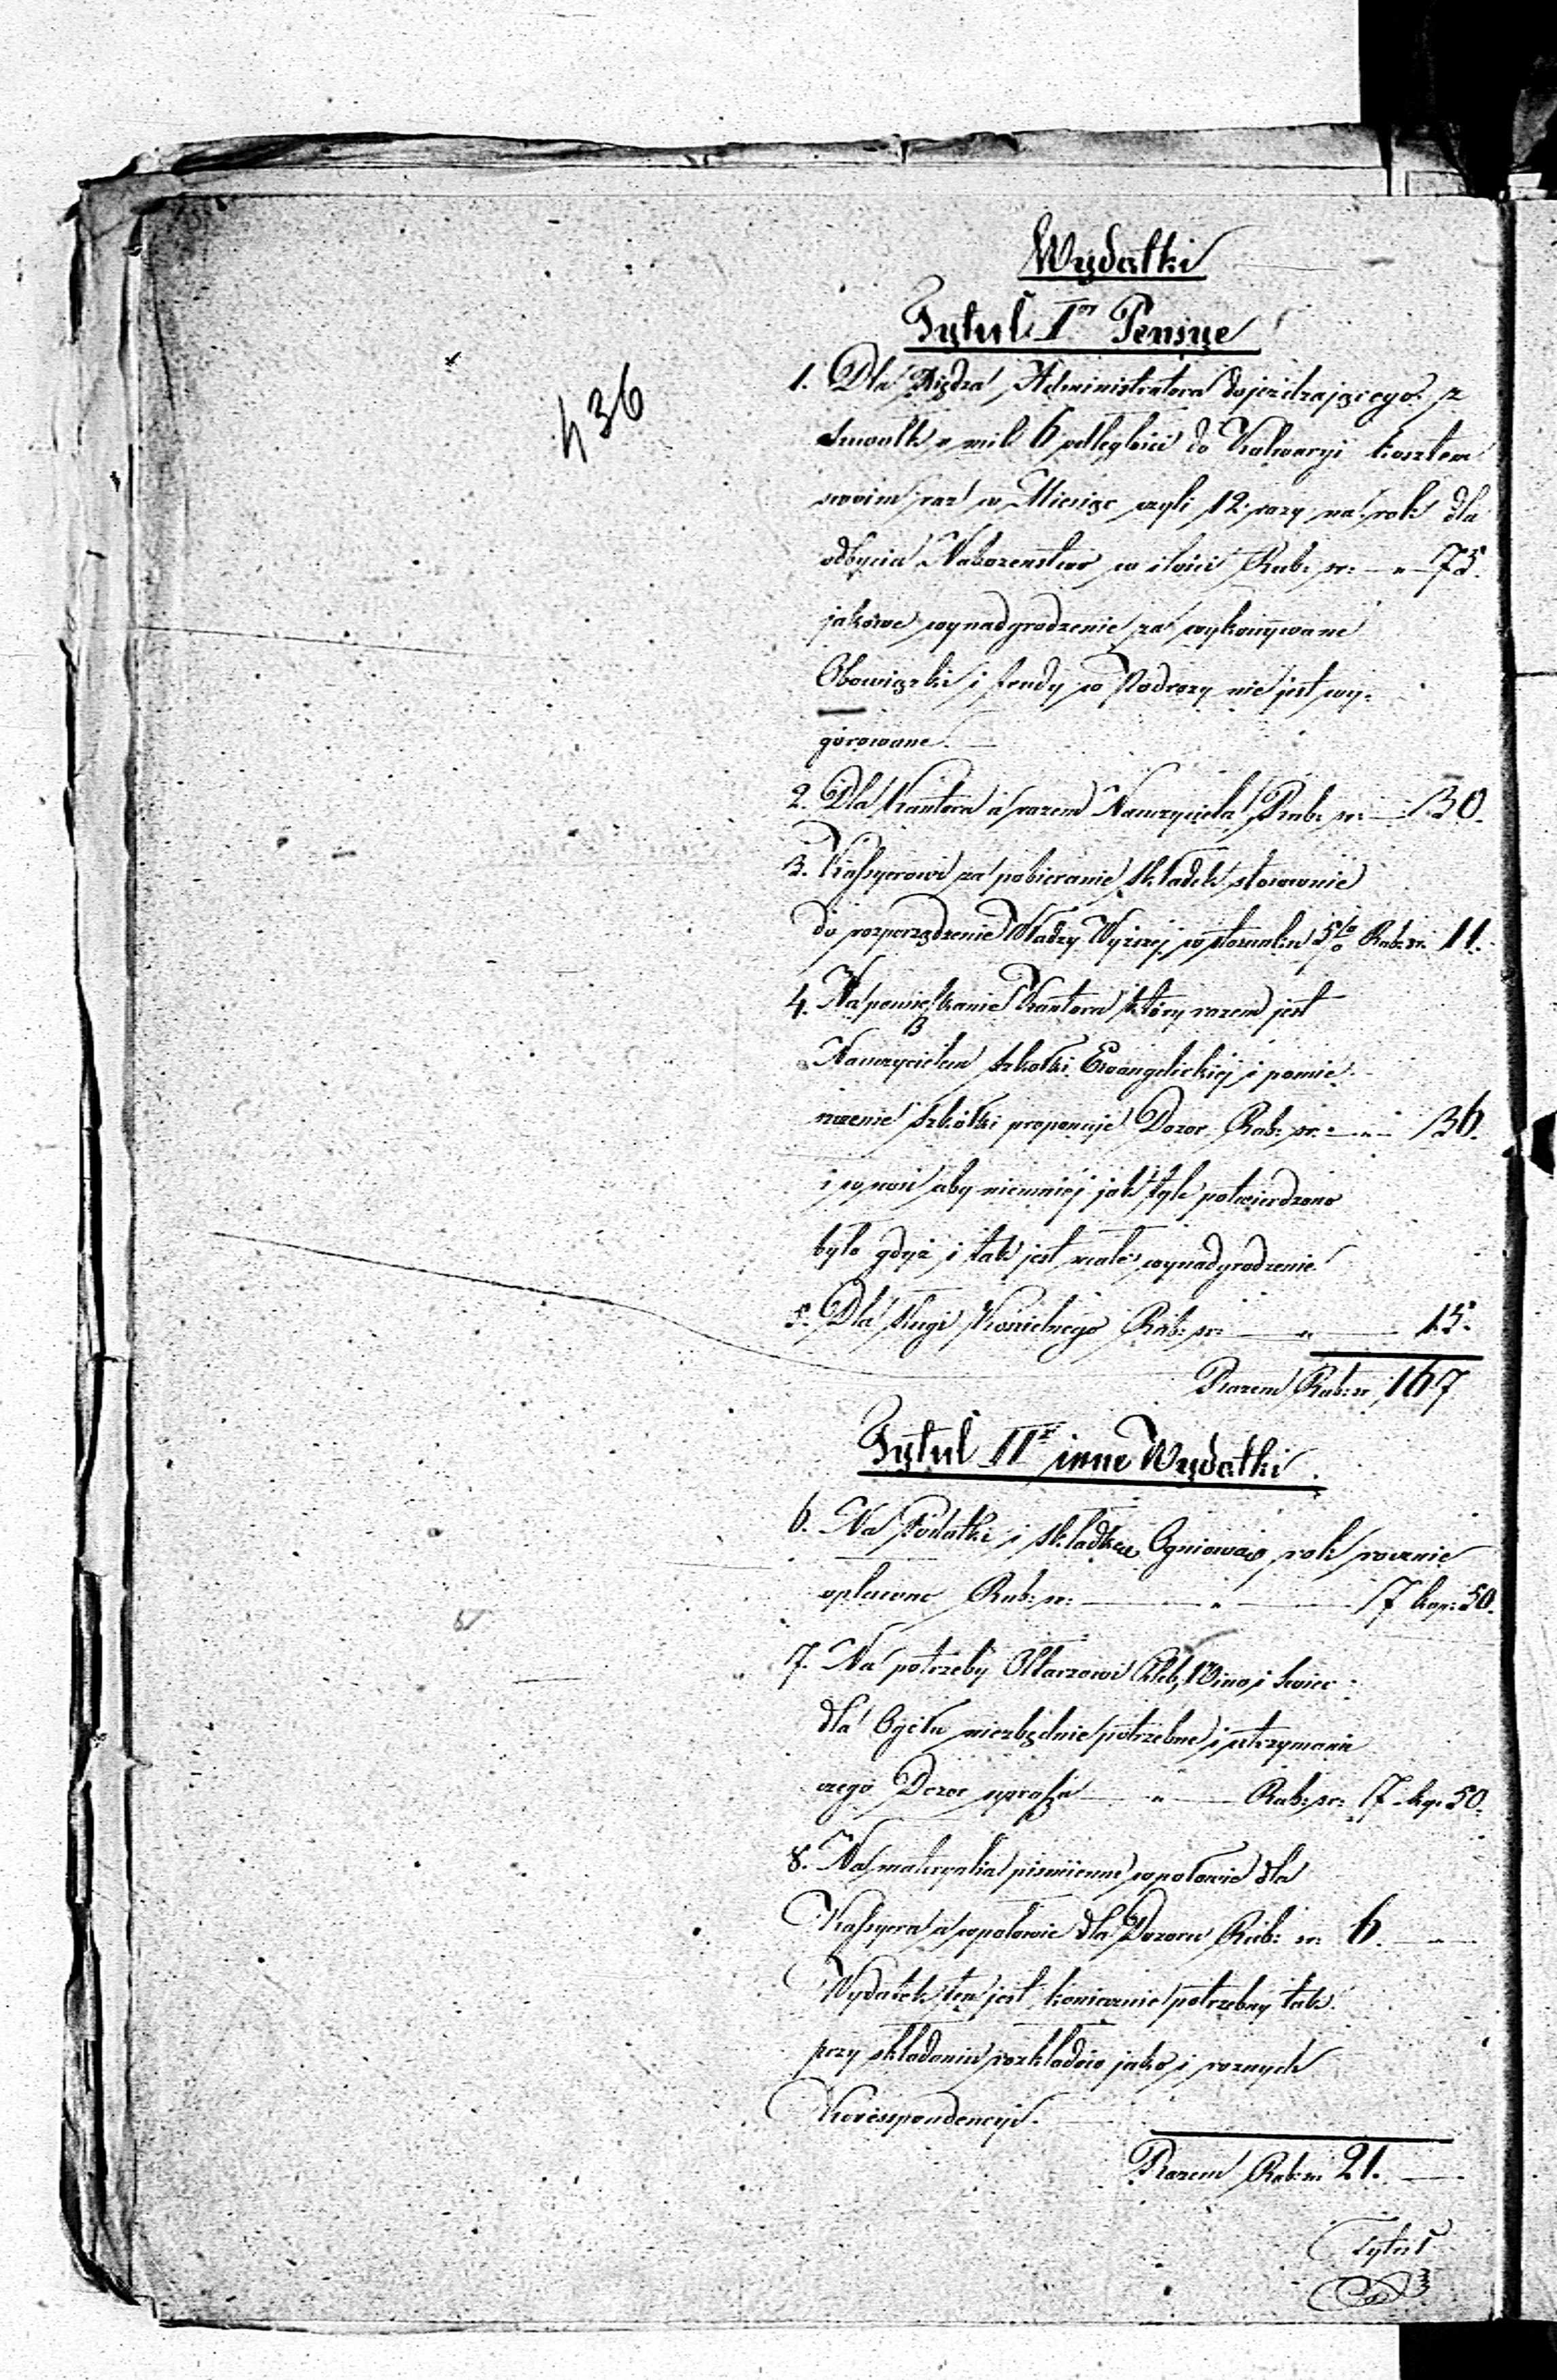 436
Wydatki
Tytuł I<sup>r</sup> Pensye
1. Dla Xiędza Administratora dojeżdzającego z
Suwałk o mil 6 odległości do Kalwaryi kosztem
swoim raz w Miesiąc czyli 12. razy na rok dla
odbycia Nabozenstwa w ilości Rub: sr: — " — 75.
jakowe wynadgrodzenie za wykonywane
Obowiązki i trudy w Podrozy nie jest wy-
gorowane. —
2. Dla Kantora a razem Nauczyciela Rub: sr: — 30.
3. Kassyerowi za pobieranie składek stosownie
do rozporządzenie Władzy Wyższej w stosunku 5% Rub: sr. 11.
4. Na pomieszkanie Kantora który razem jest
Nauczycielem szkółki Ewangelickiej i pomie-
szczenie szkółki proponuje Dozor Rub: sr: — " — 36.
i wnosi aby niemniej jak tyle potwierdzono
było gdyż i tak jest małe wynadgrodzenie.
5. Dla sługi Kościelnego Rub: sr: — " — 15.
Razem Rub: sr 167
Tytuł II<sup>r</sup> inne Wydatki.
6. Na Podatki i składkę Ogniową rok rocznie
opłacone Rub: sr: — " — 7 kop: 50.
7. Na potrzeby Ołtarzowe Chleb, Wino i Swiec
dla Ogółu niezbędnie potrzebne i utrzymanie
czego Dozor uprasza — " — Rub: sr: 7 kop. 50.
8. Na materyalia pismienne wpołowie dla
Kassyera a wpołowie dla Dozoru Rub: sr: 6. — " —
Wydatek ten jest koniecznie potrzebny tak
przy składaniu rozkładow jako i roznych
Korrespondencyi.
Razem Rub: sr 21. —
Tytuł